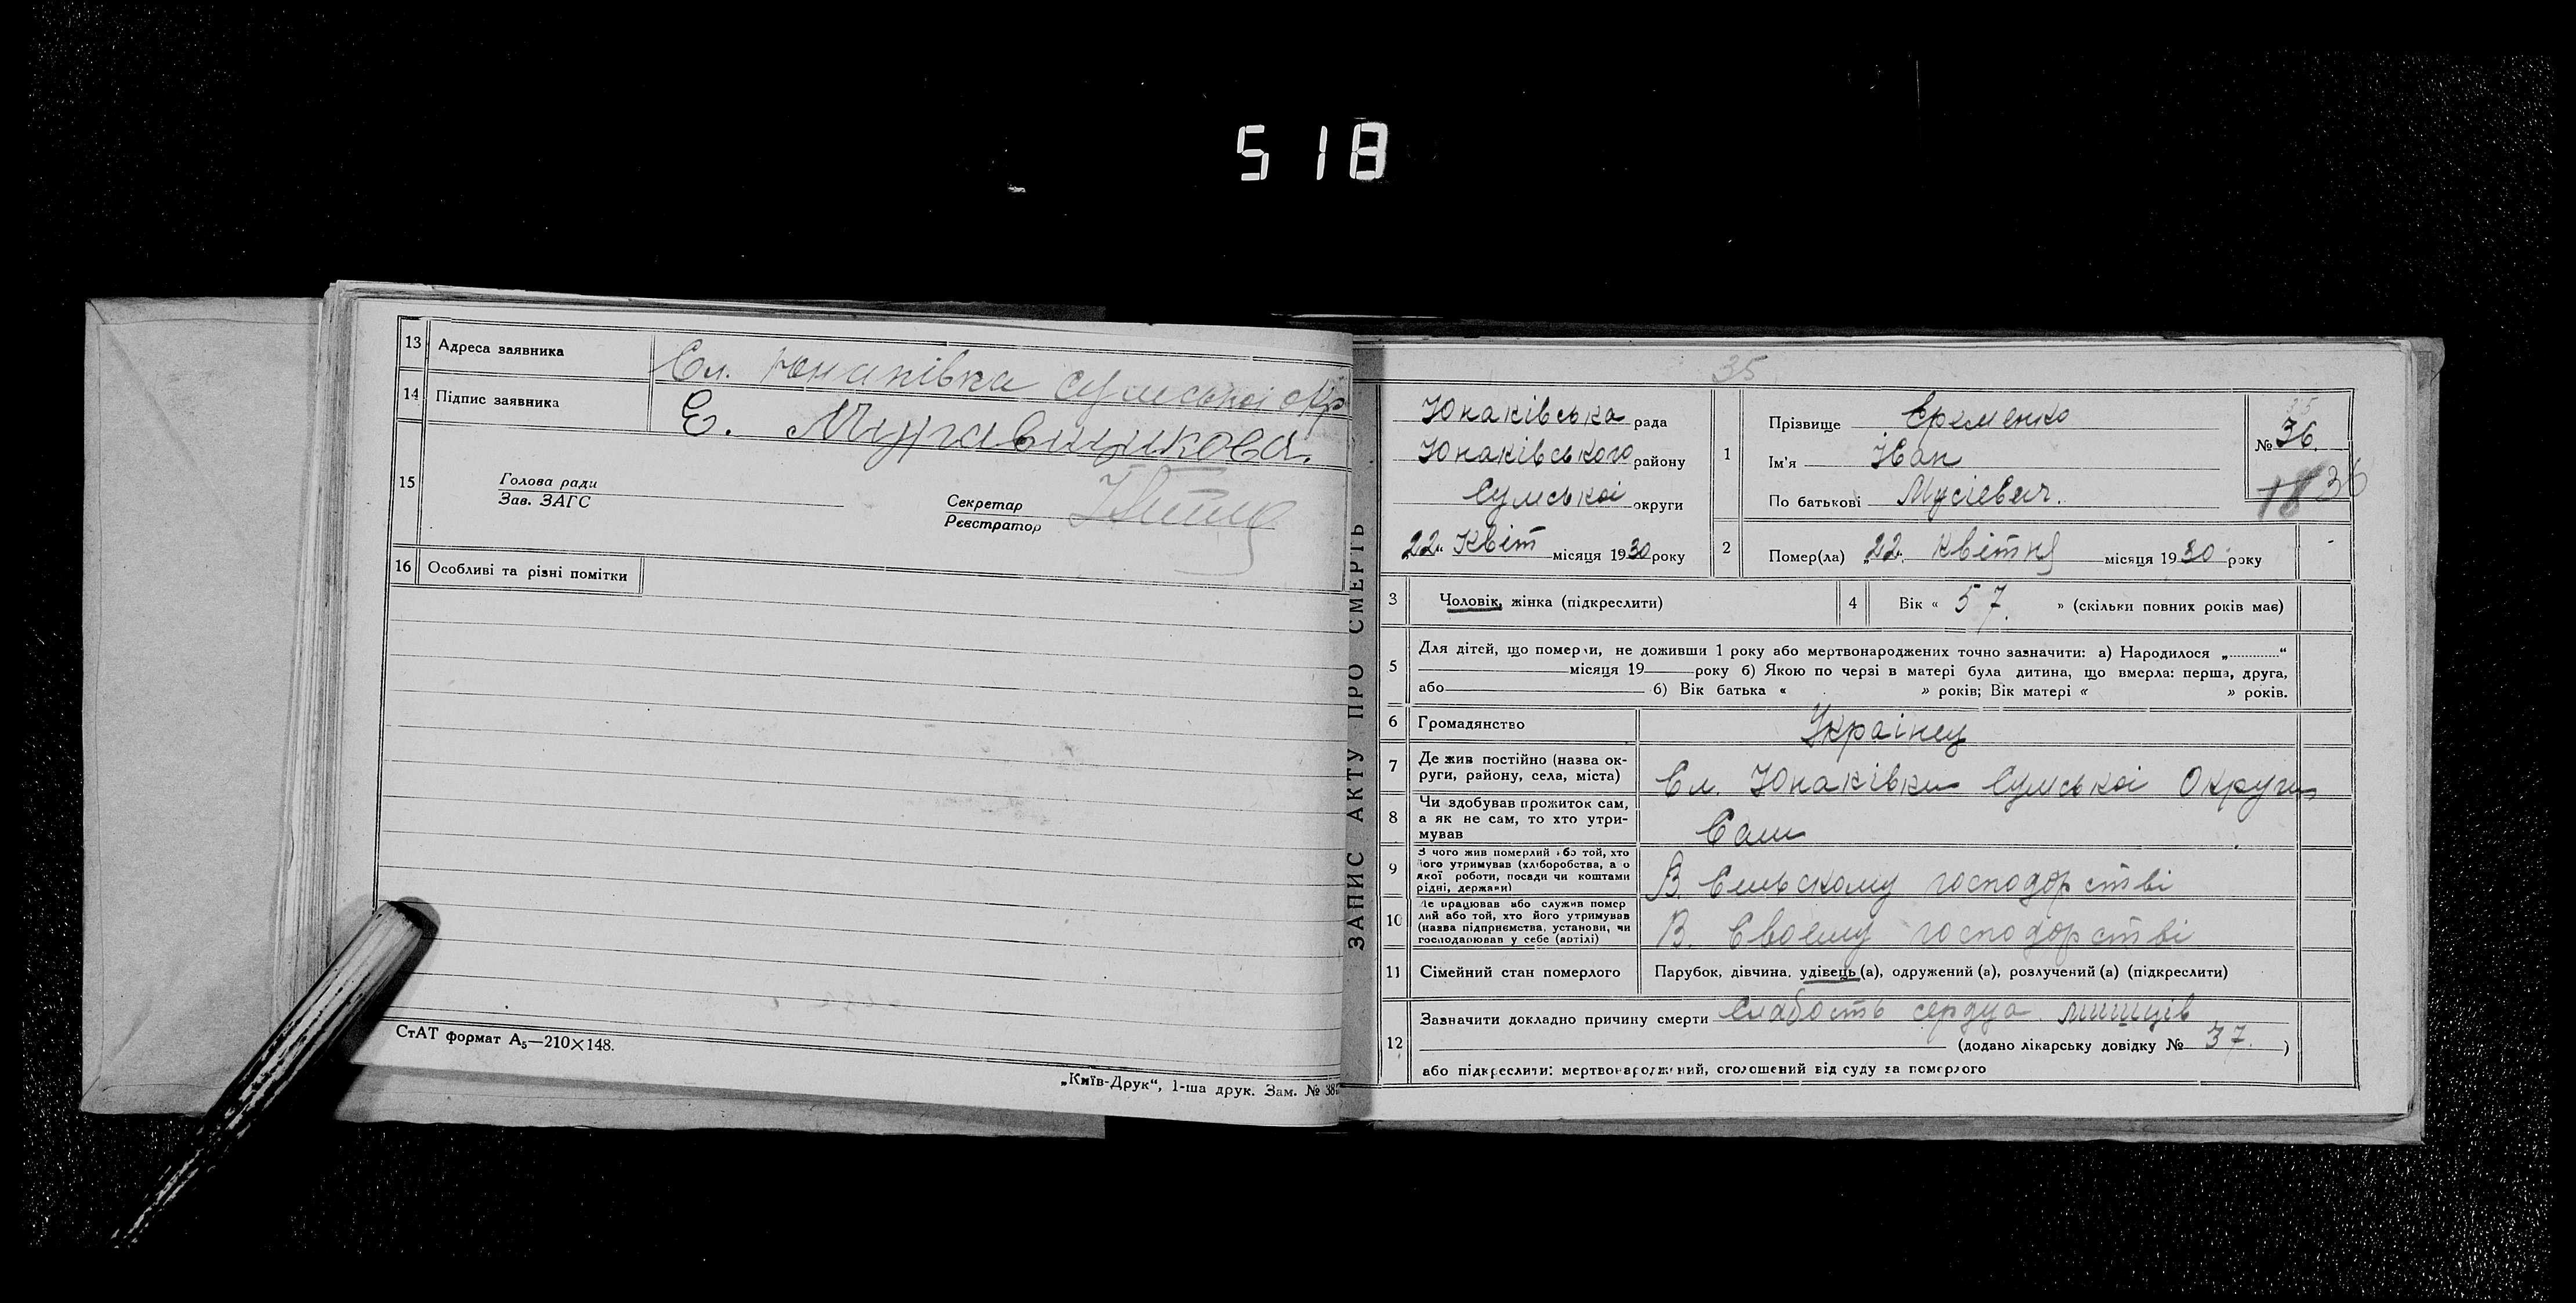 518
13 Адреса заявника Сл. Юнаківка Сумської Окр
14 Підпис заявника Е. Муравщикова.
15 Голова ради
Зав. ЗАГС
Секретар
Реєстратор
16 Особливі та різні помітки
СтАТ формат А₅—210×148.
„Київ-Друк“, 1-ша друк. Зам. № 38
ЗАПИС АКТУ ПРО СМЕРТЬ
35
Юнаківська рада
Юнаківського району
Сумської округи
22 „ Квіт місяця 1930 року
1 Прізвище Єременко
Ім'я Іван
По батькові Мусієвич.
№ 36.
18 36
2 Помер(ла) „22. квітня місяця 1930 року
3 Чоловік, жінка (підкреслити)
4 Вік « 57. » (скільки повних років має)
5 Для дітей, що померли, не доживши 1 року або мертвонароджених точно зазначити: а) Народилося „............“
місяця 19 року б) Якою по черзі в матері була дитина, що вмерла: перша, друга,
або б) Вік батька « » років; Вік матері « » років.
6 Громадянство Українец
7 Де жив постійно (назва ок-
руги, району, села, міста) Сл. Юнаківки Сумської Округи
8 Чи здобував прожиток сам,
а як не сам, то хто утри-
мував Сам
9 З чого жив померлий або той, хто
його утримував (хліборобства, а о
якої роботи, посади чи коштами
рідні, держави) В. Сильскому господорстві
10 Де працював або служив помер
лий або той, хто його утримував
(назва підприємства, установи, чи
господарював у себе (артілі) В. Своєму господорстві
11 Сімейний стан померлого Парубок, дівчина, удівець (а), одружений (а), розлучений (а) (підкреслити)
12 Зазначити докладно причину смерти Слабость сердца мишців
(додано лікарську довідку № 37. )
або підкреслити: мертвонароджений, оголошений від суду за померлого